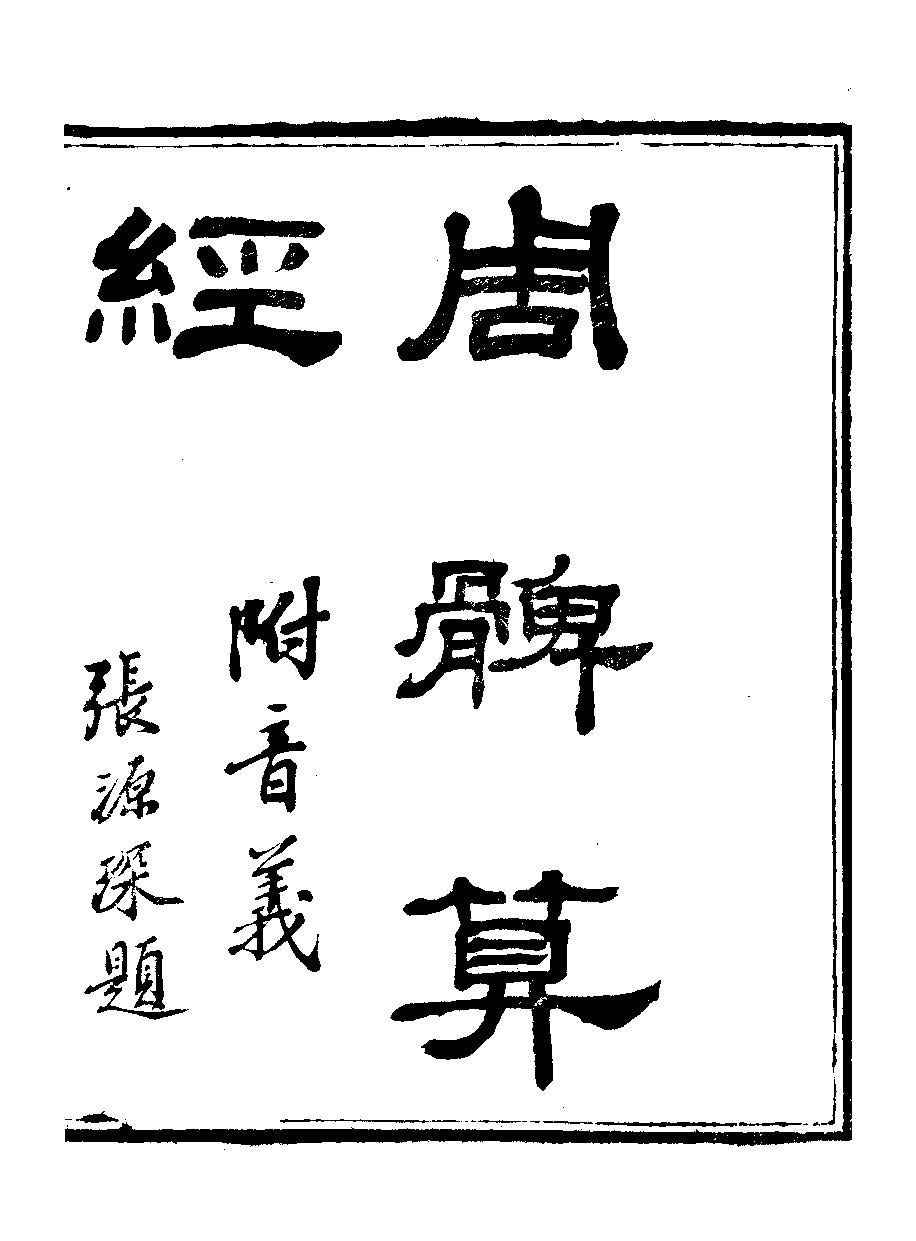 周髀算
經
附音義
張源琛題